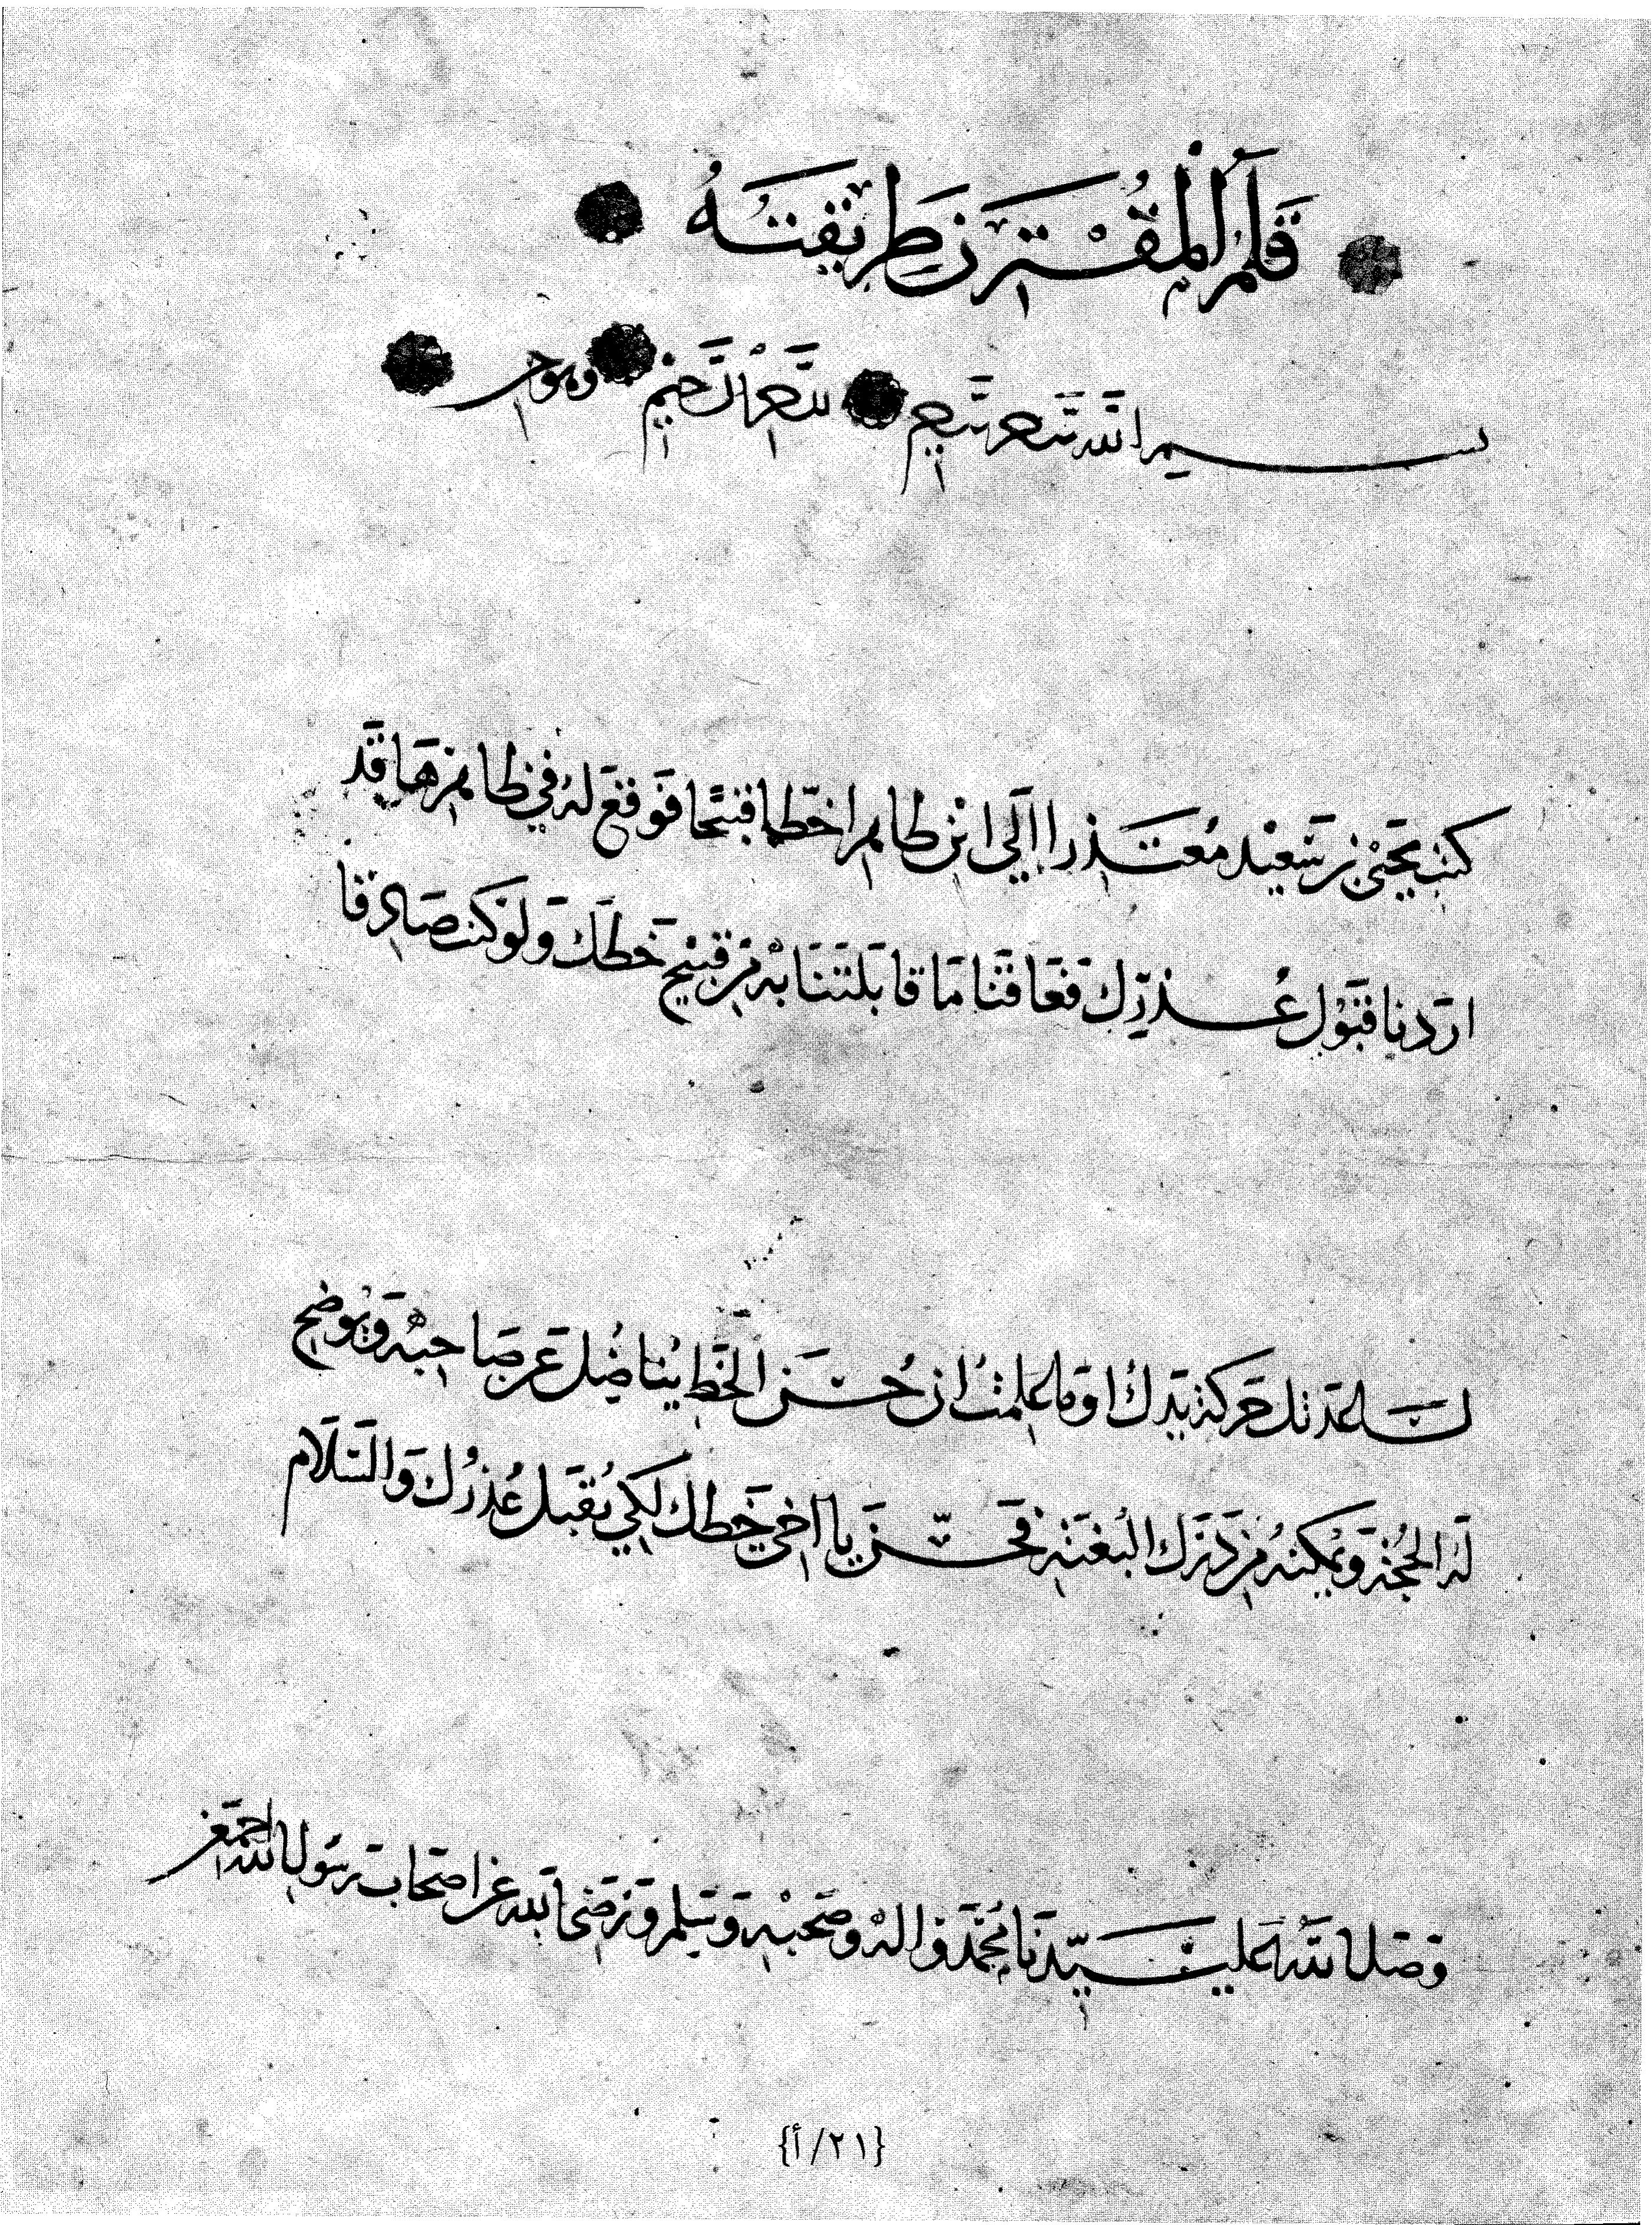 قَلَمُ الْمُقْتَرِن طَرِيقَتَهُ
بسم الله
الرحيم وهو
كتب يحيى بن سعيد معتذرا إلى ابن طاهر خطا قبيحا فوقع له في ظاهرها قد
اردنا قبول عذرك فعاقنا ما قابلتنا به من قبيح خطك ولو كنت صادقا
لساعدتك حركة يدك اوما علمت ان حسن الخط يناضل عن صاحبه ويوضح
له الحجة ويمكنه من درك البغية فحسن يا اخي خطك لكي يقبل عذرك والسلام
وصل الله على سيدنا محمد واله وصحبه وسلم ورضى الله عن اصحاب رسول الله اجمعين
{٢١/أ}